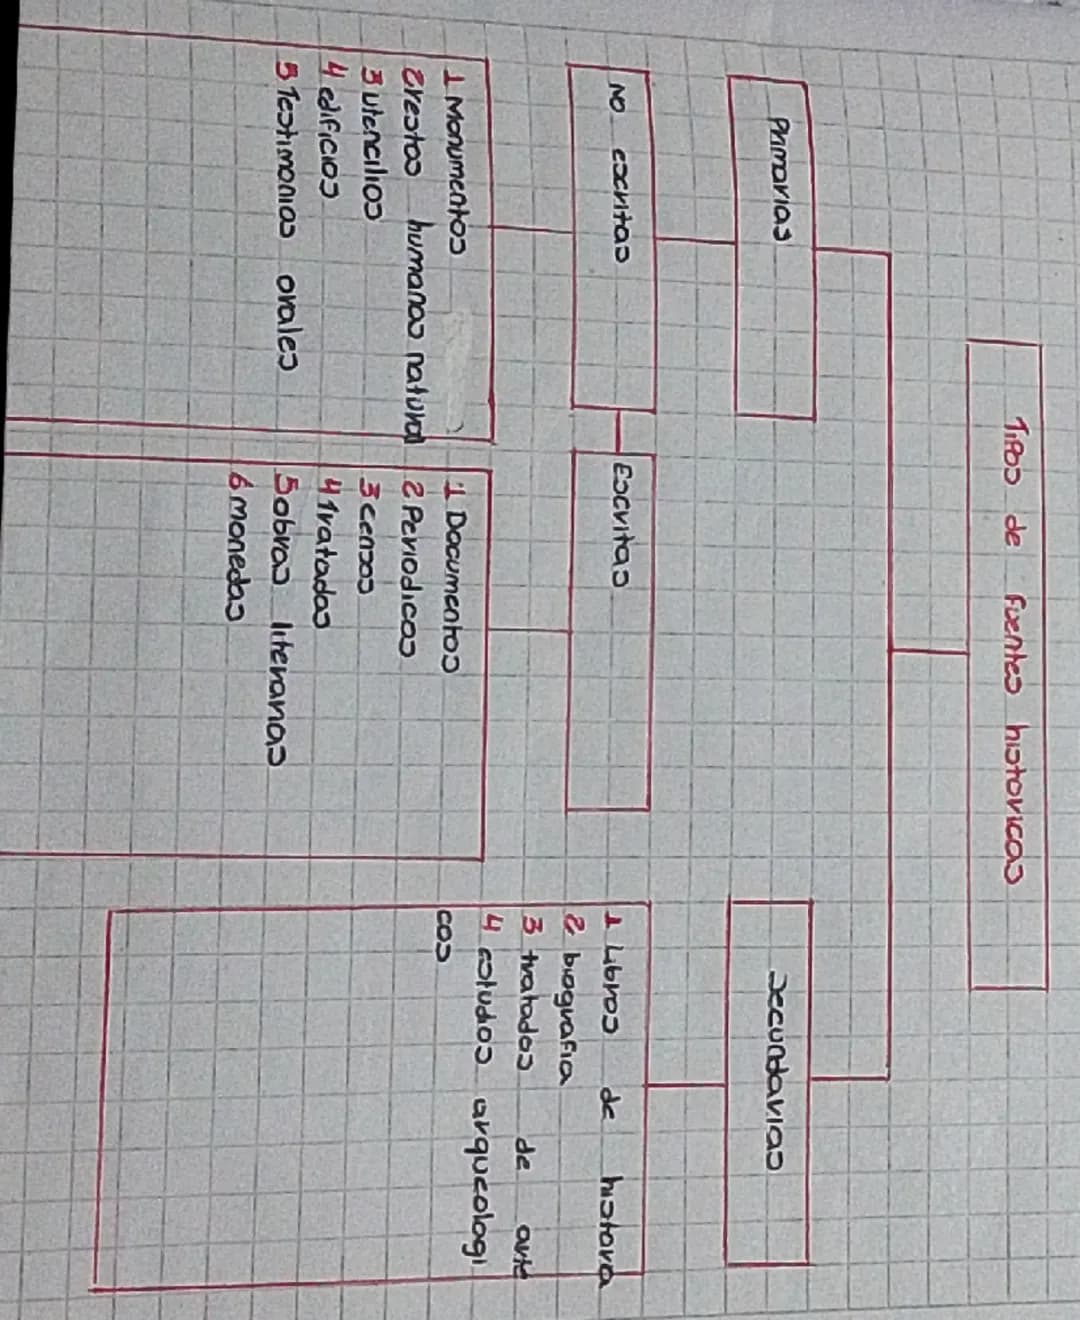 Tipos de fuentes historicas
Primarias
Secundarias
No escritas
Escritas
1 Monumentos
2 restos humanos natural
3 utencilios
4 edificios
5 Testimonios orales
1 Documentos
2 Periodicos
3 censos
4 tratados
5 obras literarias
6 monedas
1 Libros de historia
2 biografia
3 tratados de arte
4 estudios arqueologi
cos